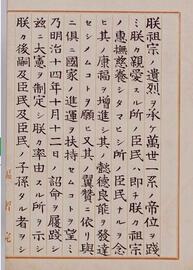 朕祖宗ノ遺烈ヲ承ケ萬世一系ノ帝位ヲ踐
ミ朕カ親愛スル所ノ臣民ハ即チ朕カ祖宗
ノ惠撫慈養シタマヒシ所ノ臣民ナルヲ念
ヒ其ノ康福ヲ增進シ其ノ懿德良能ヲ發達
セシメムコトヲ願ヒ又其ノ翼贊ニ依リ與
ニ俱ニ國家ノ進運ヲ扶持セムコトヲ望ミ
乃チ明治十四年十月十二日ノ詔命ヲ履踐シ
茲ニ大憲ヲ制定シ朕カ率由スル所ヲ示シ
朕カ後嗣及臣民及臣民ノ子孫タル者ヲシ